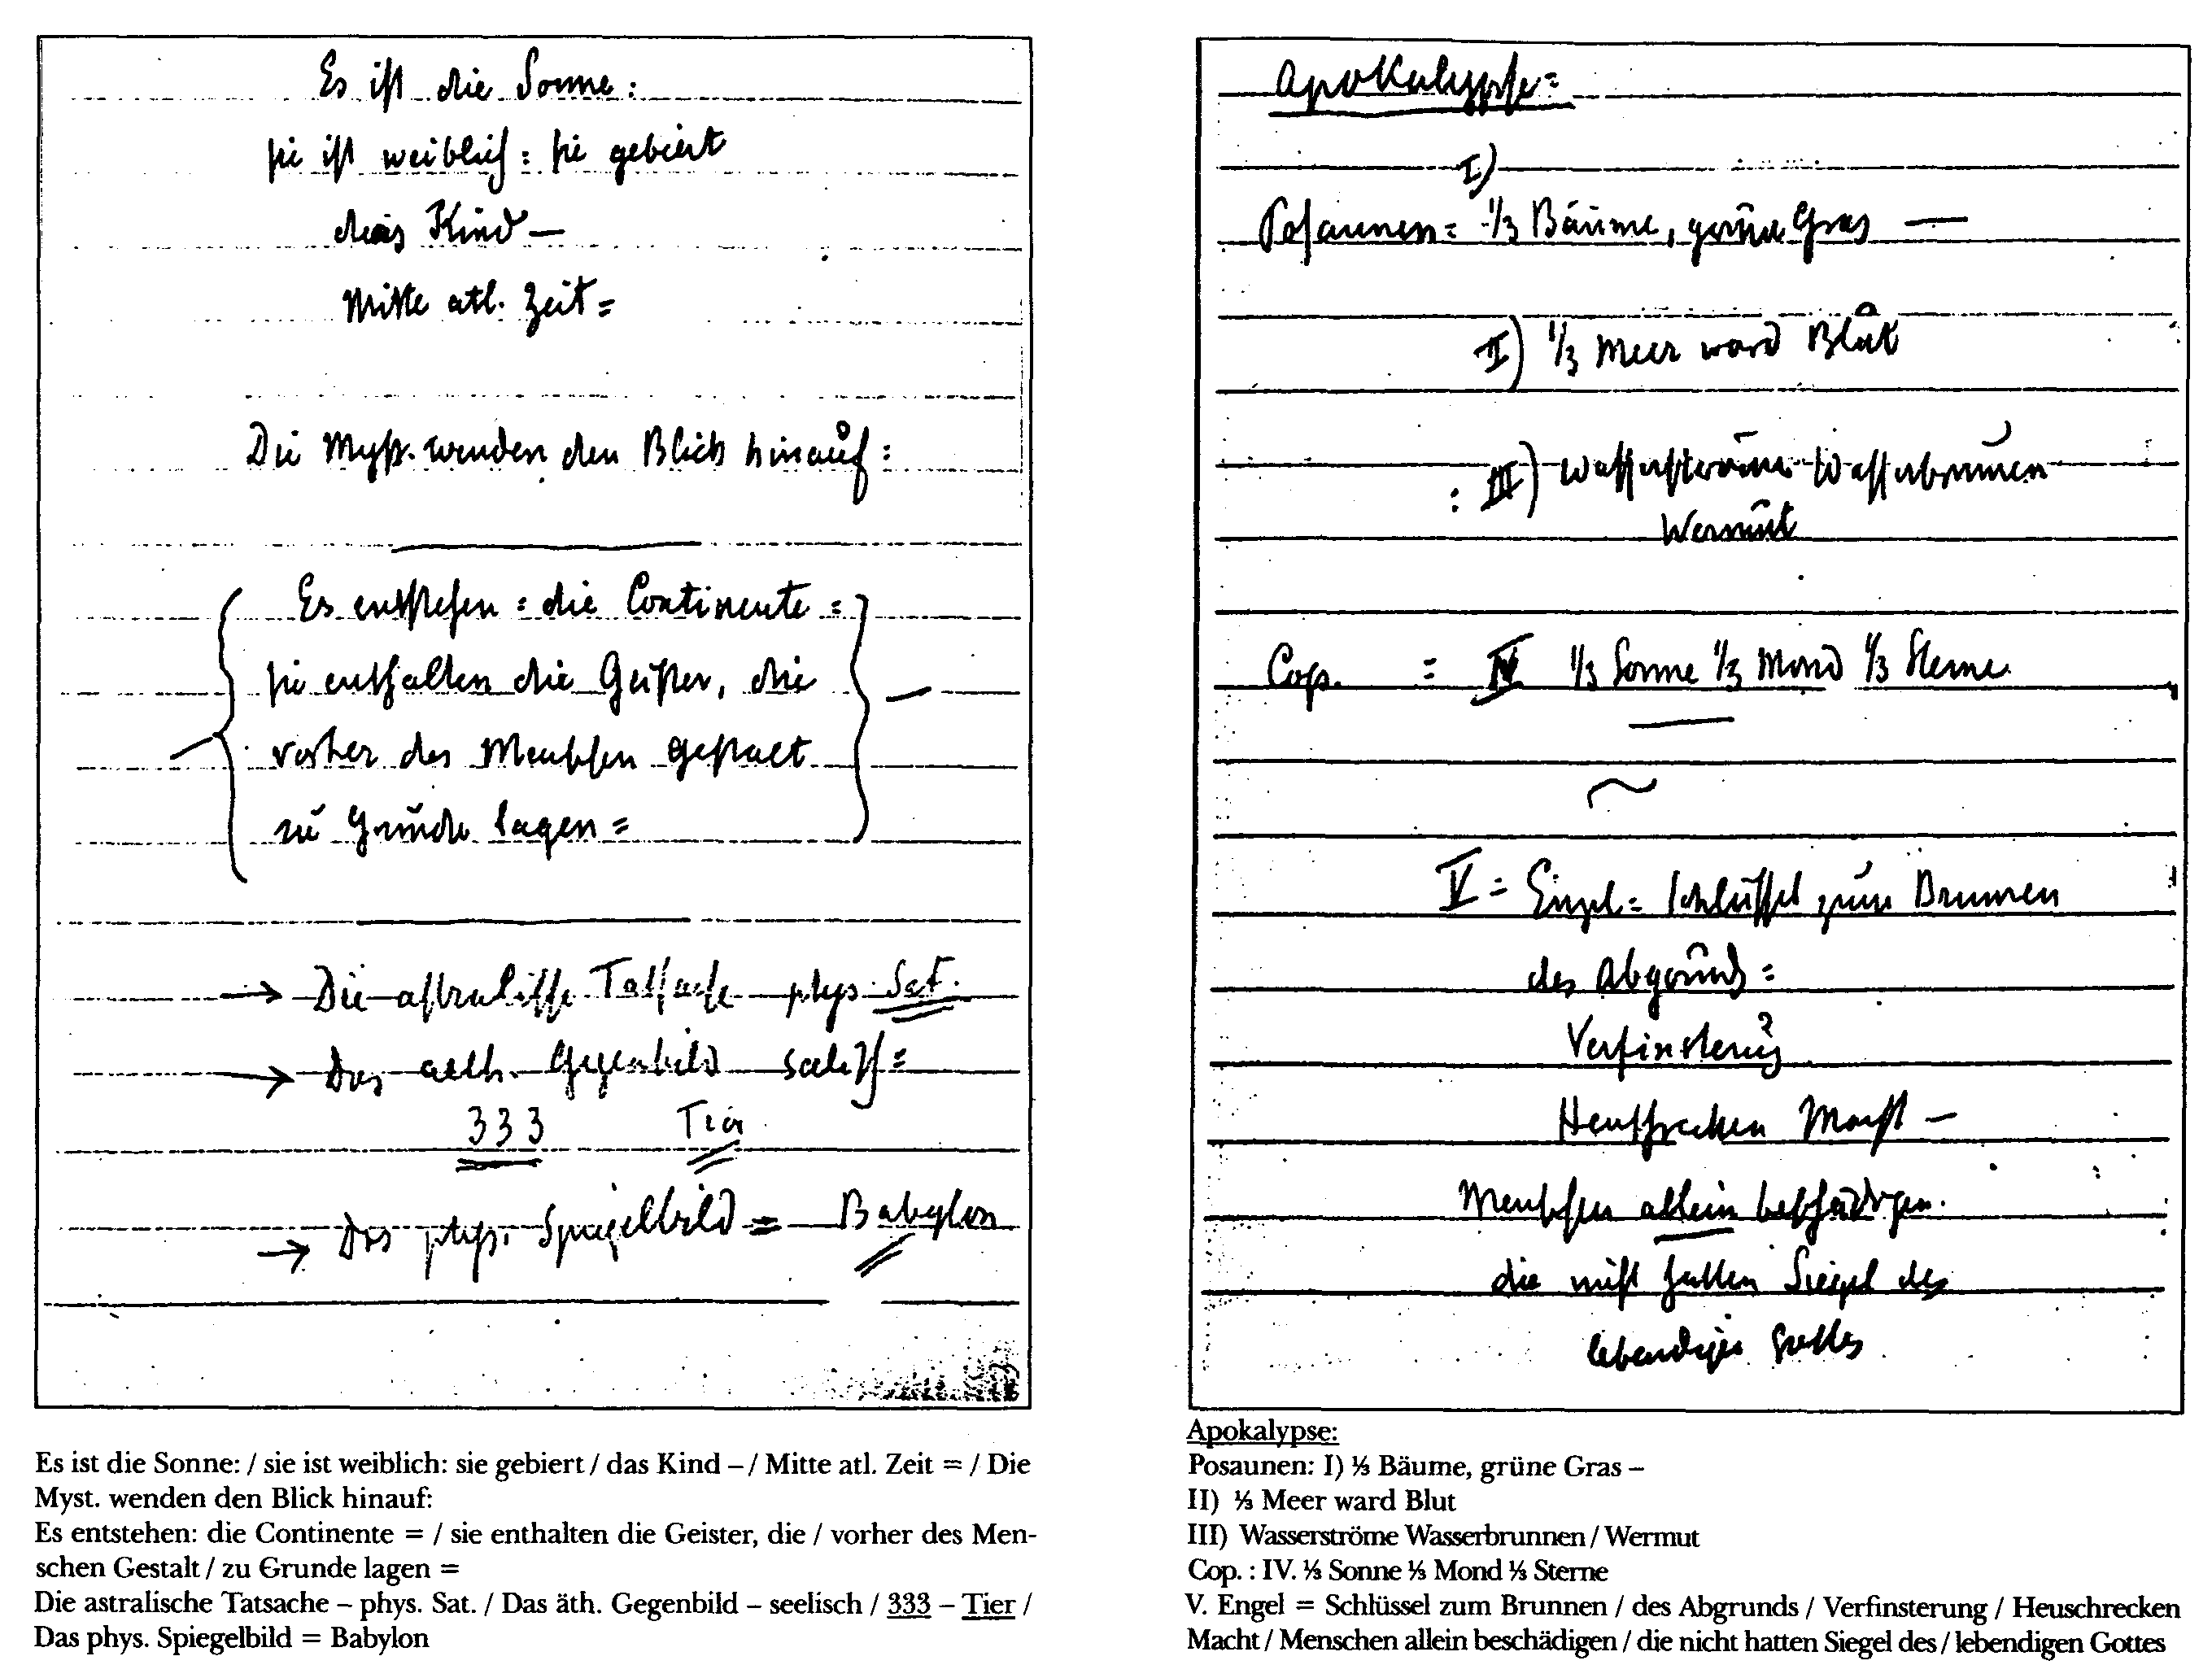 Es ist die Sonne:
sie ist weiblich: sie gebiert
das Kind –
Mitte atl. Zeit =
Die Myst. wenden den Blick hinauf:
Es entstehen: die Continente =
sie enthalten die Geister, die
vorher des Menschen Gestalt
zu Grunde lagen =
→ Die astralische Tatsache phys. Sat.
→ Das aeth. Gegenbild seelisch =
333 Tier
→ Das phys. Spiegelbild = Babylon
Es ist die Sonne: / sie ist weiblich: sie gebiert / das Kind – / Mitte atl. Zeit = / Die
Myst. wenden den Blick hinauf:
Es entstehen: die Continente = / sie enthalten die Geister, die / vorher des Men-
schen Gestalt / zu Grunde lagen =
Die astralische Tatsache – phys. Sat. / Das äth. Gegenbild – seelisch / 333 – Tier /
Das phys. Spiegelbild = Babylon
Apokalypse =
I)
Posaunen = 1/3 Bäume, grüne Gras —
II) 1/3 Meer ward Blut
: III) Wasserströme Wasserbrunnen
Wermut
Cop. = IV 1/3 Sonne 1/3 Mond 1/3 Sterne
V = Engel = Schlüssel zum Brunnen
des Abgrunds =
Verfinsterung
Heuschrecken Macht –
Menschen allein beschädigen.
die nicht hatten Siegel des
lebendigen Gottes
Apokalypse:
Posaunen: I) ⅓ Bäume, grüne Gras –
II) ⅓ Meer ward Blut
III) Wasserströme Wasserbrunnen / Wermut
Cop. : IV. ⅓ Sonne ⅓ Mond ⅓ Sterne
V. Engel = Schlüssel zum Brunnen / des Abgrunds / Verfinsterung / Heuschrecken
Macht / Menschen allein beschädigen / die nicht hatten Siegel des / lebendigen Gottes